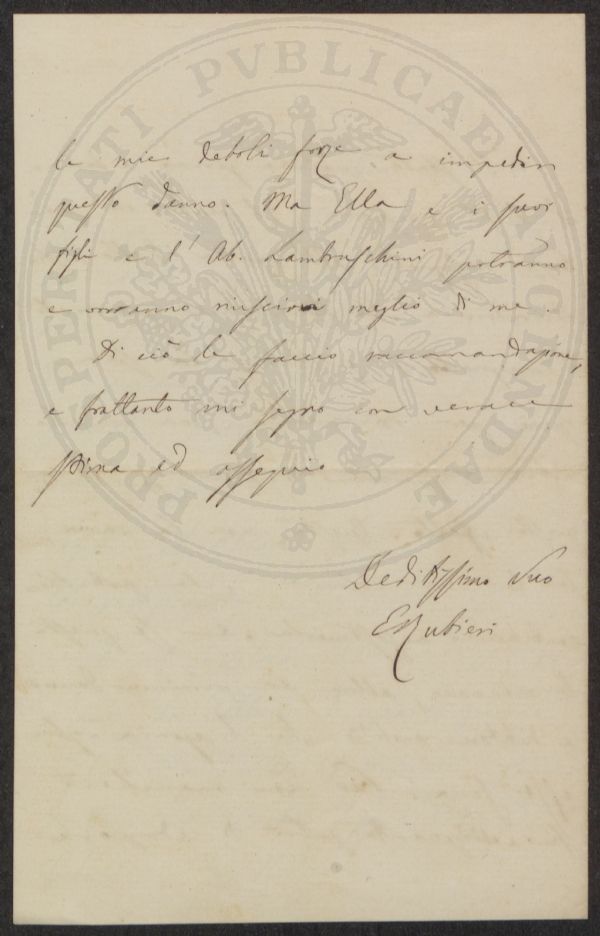 PROSPERITATI PVBLICAE AVGENDAE
le mie deboli forze a impedire
questo danno. Ma Ella e i suoi
figli e l' Ab. Lambruschini potranno
e vorranno riuscirvi meglio di me.
Di ciò le faccio raccomandazione,
e frattanto mi segno con verace
stima ed ossequio
Deditissimo Suo
E Rubieri